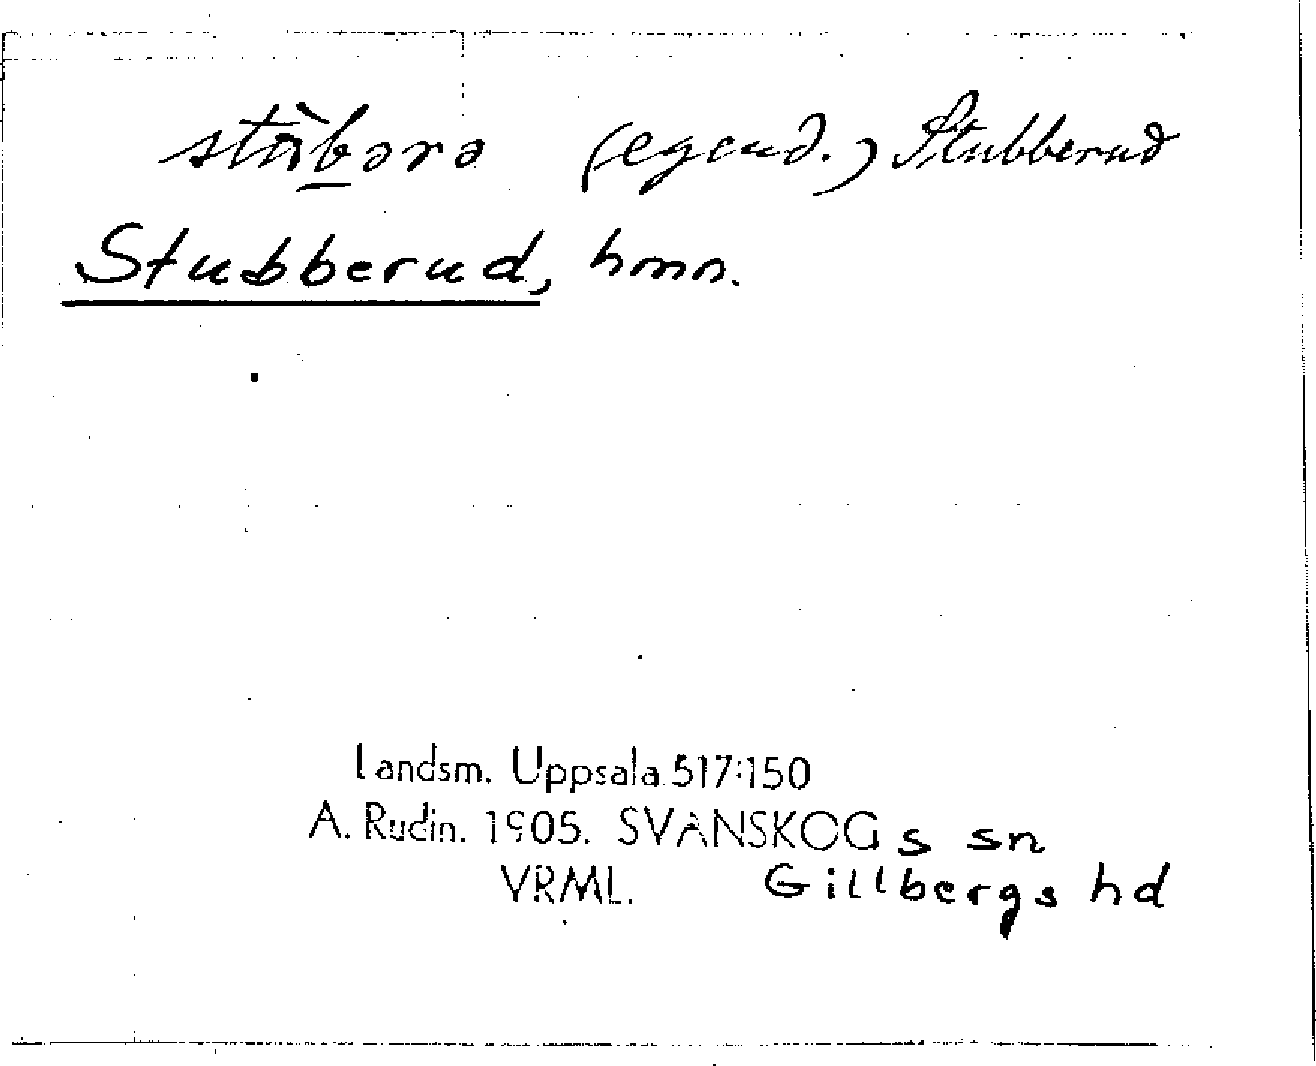 (egend.) Stubberud
Stubberud, hmn.
Landsm. Uppsala 517:150
A. Rudin. 1905. SVANSKOGs sn
VRML. Gillbergs hd